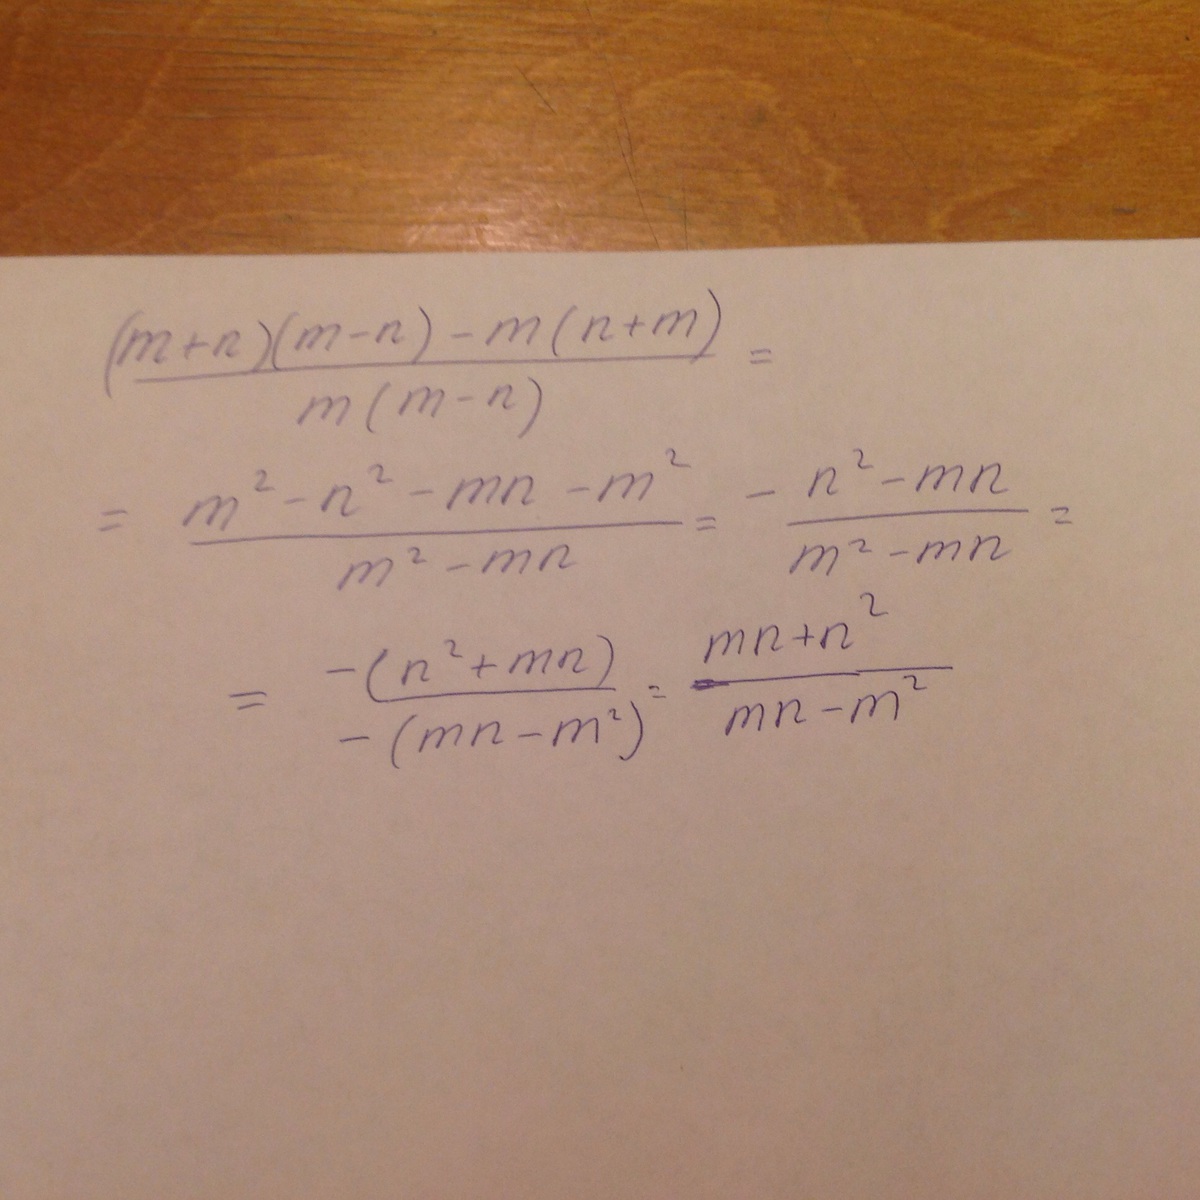 (m+n)(m-n)-m(n+m) / m(m-n) =
= m²-n²-mn-m² / m²-mn = - n²-mn / m²-mn =
= -(n²+mn) / -(mn-m²) = mn+n² / mn-m²